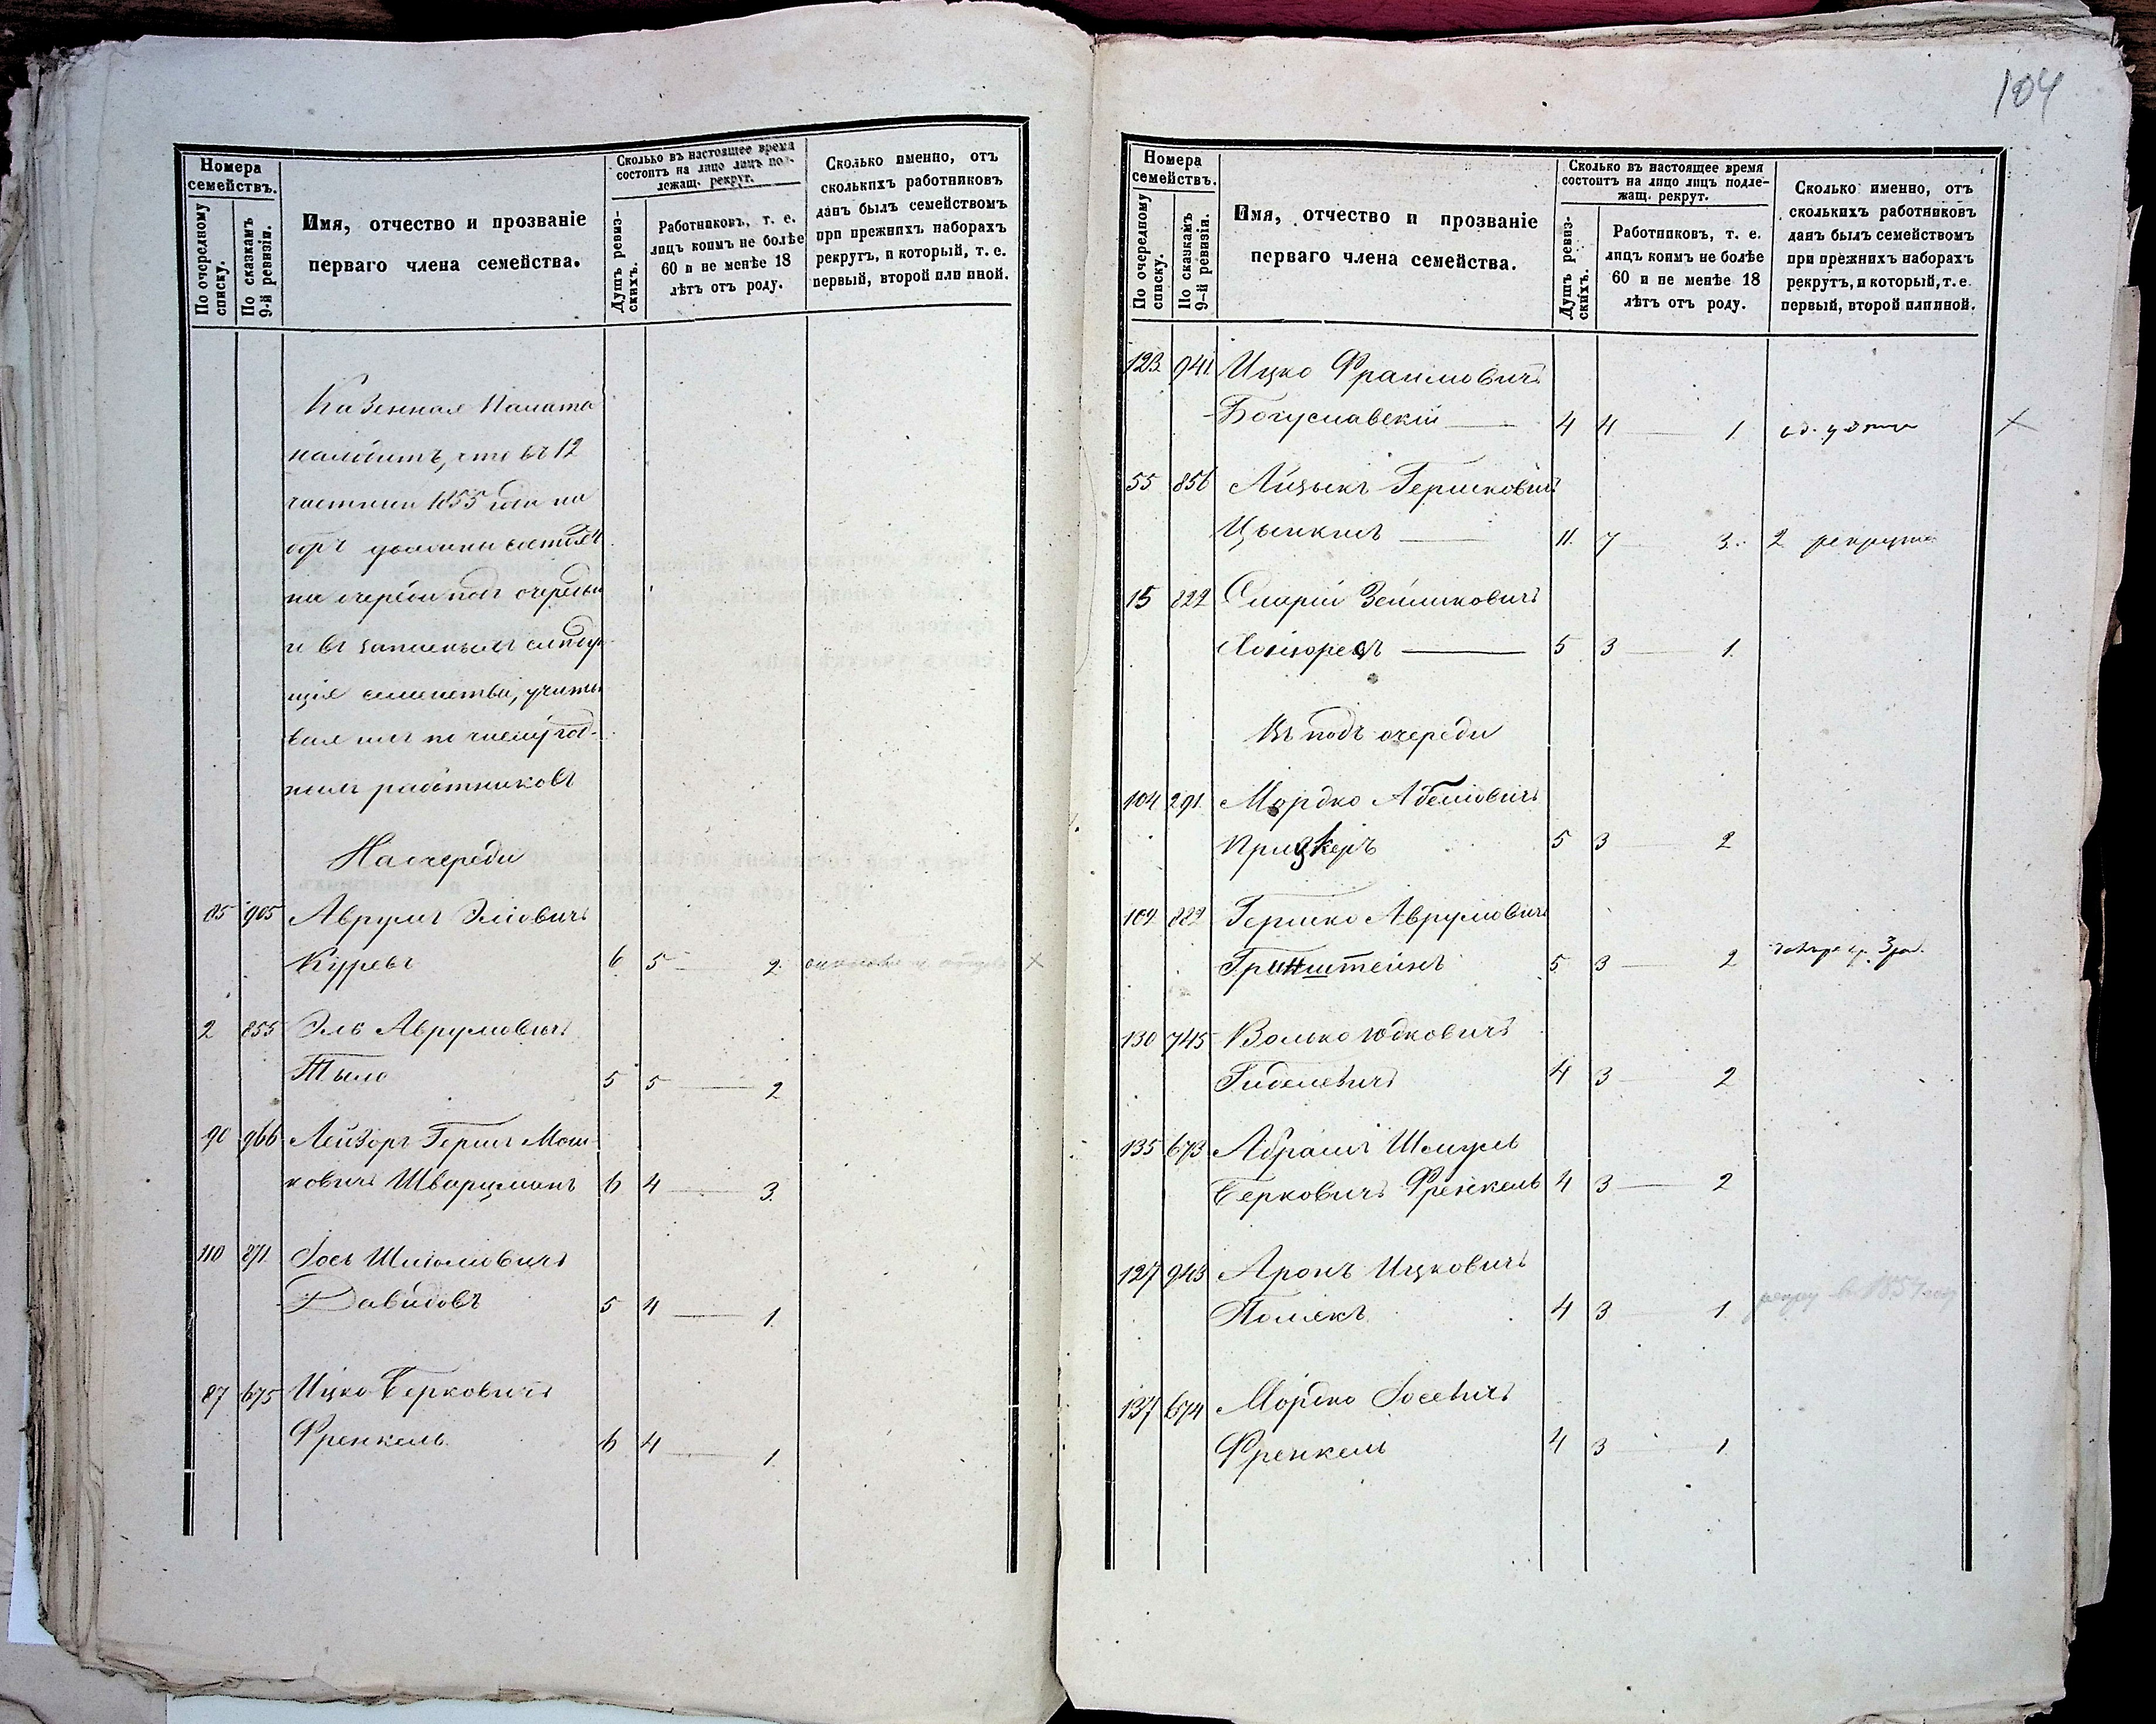 104
Номера
семействъ.
По очередному
списку.
По сказкамъ
9-й ревизіи.
Имя, отчество и прозваніе
перваго члена семейства.
Сколько въ настоящее время
состоитъ на лицо лицъ под-
лежащ. рекрут.
Душъ ревиз-
скихъ.
Работниковъ, т. е.
лицъ коимъ не болѣе
60 и не менѣе 18
лѣтъ отъ роду.
Сколько именно, отъ
сколькихъ работниковъ
данъ былъ семействомъ
при прежнихъ наборахъ
рекрутъ, и который, т. е.
первый, второй или иной.
Казенная Палата
находитъ, что въ 12
частный 1855 года на
боръ должны состоять
на очереди подъ очереди
и въ запасныхъ слѣдую
щія семейства, учиты
вая ихъ по числу год-
ныхъ работниковъ
На очереди
85 905 Аврумъ Эліовичъ
Куревъ 6 5 — 2
2 855 Эль Аврумовичъ
5 5 — 2
90 966 Лейзоръ Гершъ Мош
ковичъ Шварцманъ 6 4 — 3
110 871 Іось Шліомовичъ
Давидовъ 5 4 — 1
87 675 Ицко Берковичъ
Френкель 6 4 — 1
Номера
семействъ.
По очередному
списку.
По сказкамъ
9-й ревизіи.
Имя, отчество и прозваніе
перваго члена семейства.
Сколько въ настоящее время
состоитъ на лицо лицъ подле-
жащ. рекрут.
Душъ ревиз-
скихъ.
Работниковъ, т. е.
лицъ коимъ не болѣе
60 и не менѣе 18
лѣтъ отъ роду.
Сколько именно, отъ
сколькихъ работниковъ
данъ былъ семействомъ
при прежнихъ наборахъ
рекрутъ, и который, т. е.
первый, второй или иной.
123 941 Ицко Фраимовичъ
Богуславскій — 4 4 — 1
55 856 Айзыкъ Гершковичъ
Цыпкинъ — 11 7 3 2 рекрута
15 822 Зельмковичъ
5 3 — 1
Въ подъ очереди
104 291 Мордко Абелiовичъ
Прицкеръ 5 3 — 2
109 882 Гершко Аврумовичъ
Гринштейнъ 5 3 — 2
130 745 Волько Юдковичъ
Гиделевичъ 4 3 — 2
135 673 Абрамъ Шмуль
Берковичъ Френкель 4 3 — 2
127 943 Аронъ Ицковичъ
Полякъ 4 3 — 1
137 674 Мордко Іосевичъ
Френкель 4 3 — 1